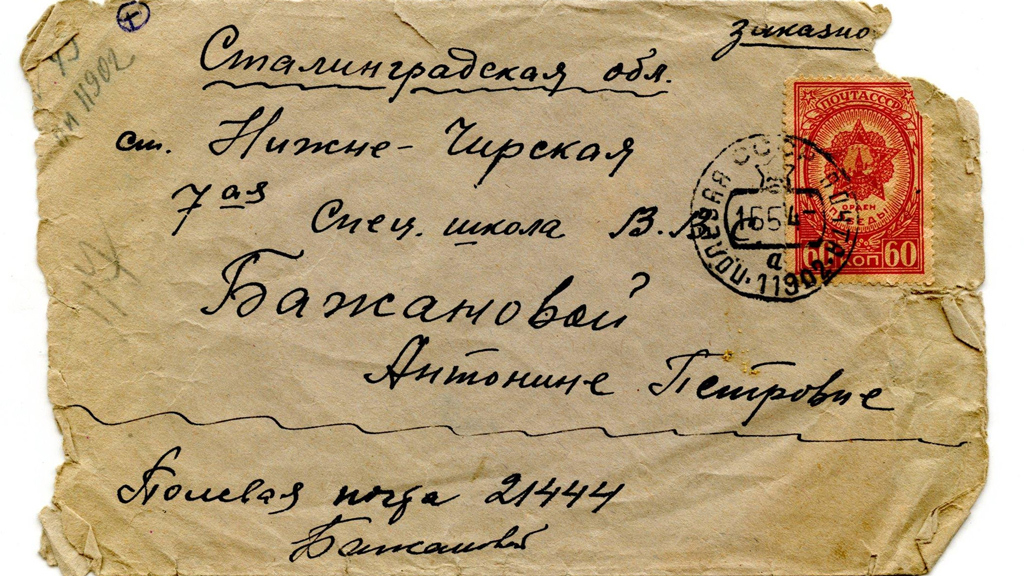 Заказно
Сталинградская обл.
ст. Нижне-Чирская
7ая
Спец. школа В.В.
Бажановой
Антонине Петровне
Полевая почта 21444
Бажановой
ПОЧТА СССР
ОРДЕН
ПОБЕДЫ
60 КОП 60
СССР
ПОЛЕВАЯ ПОЧТА
11902
а
11902